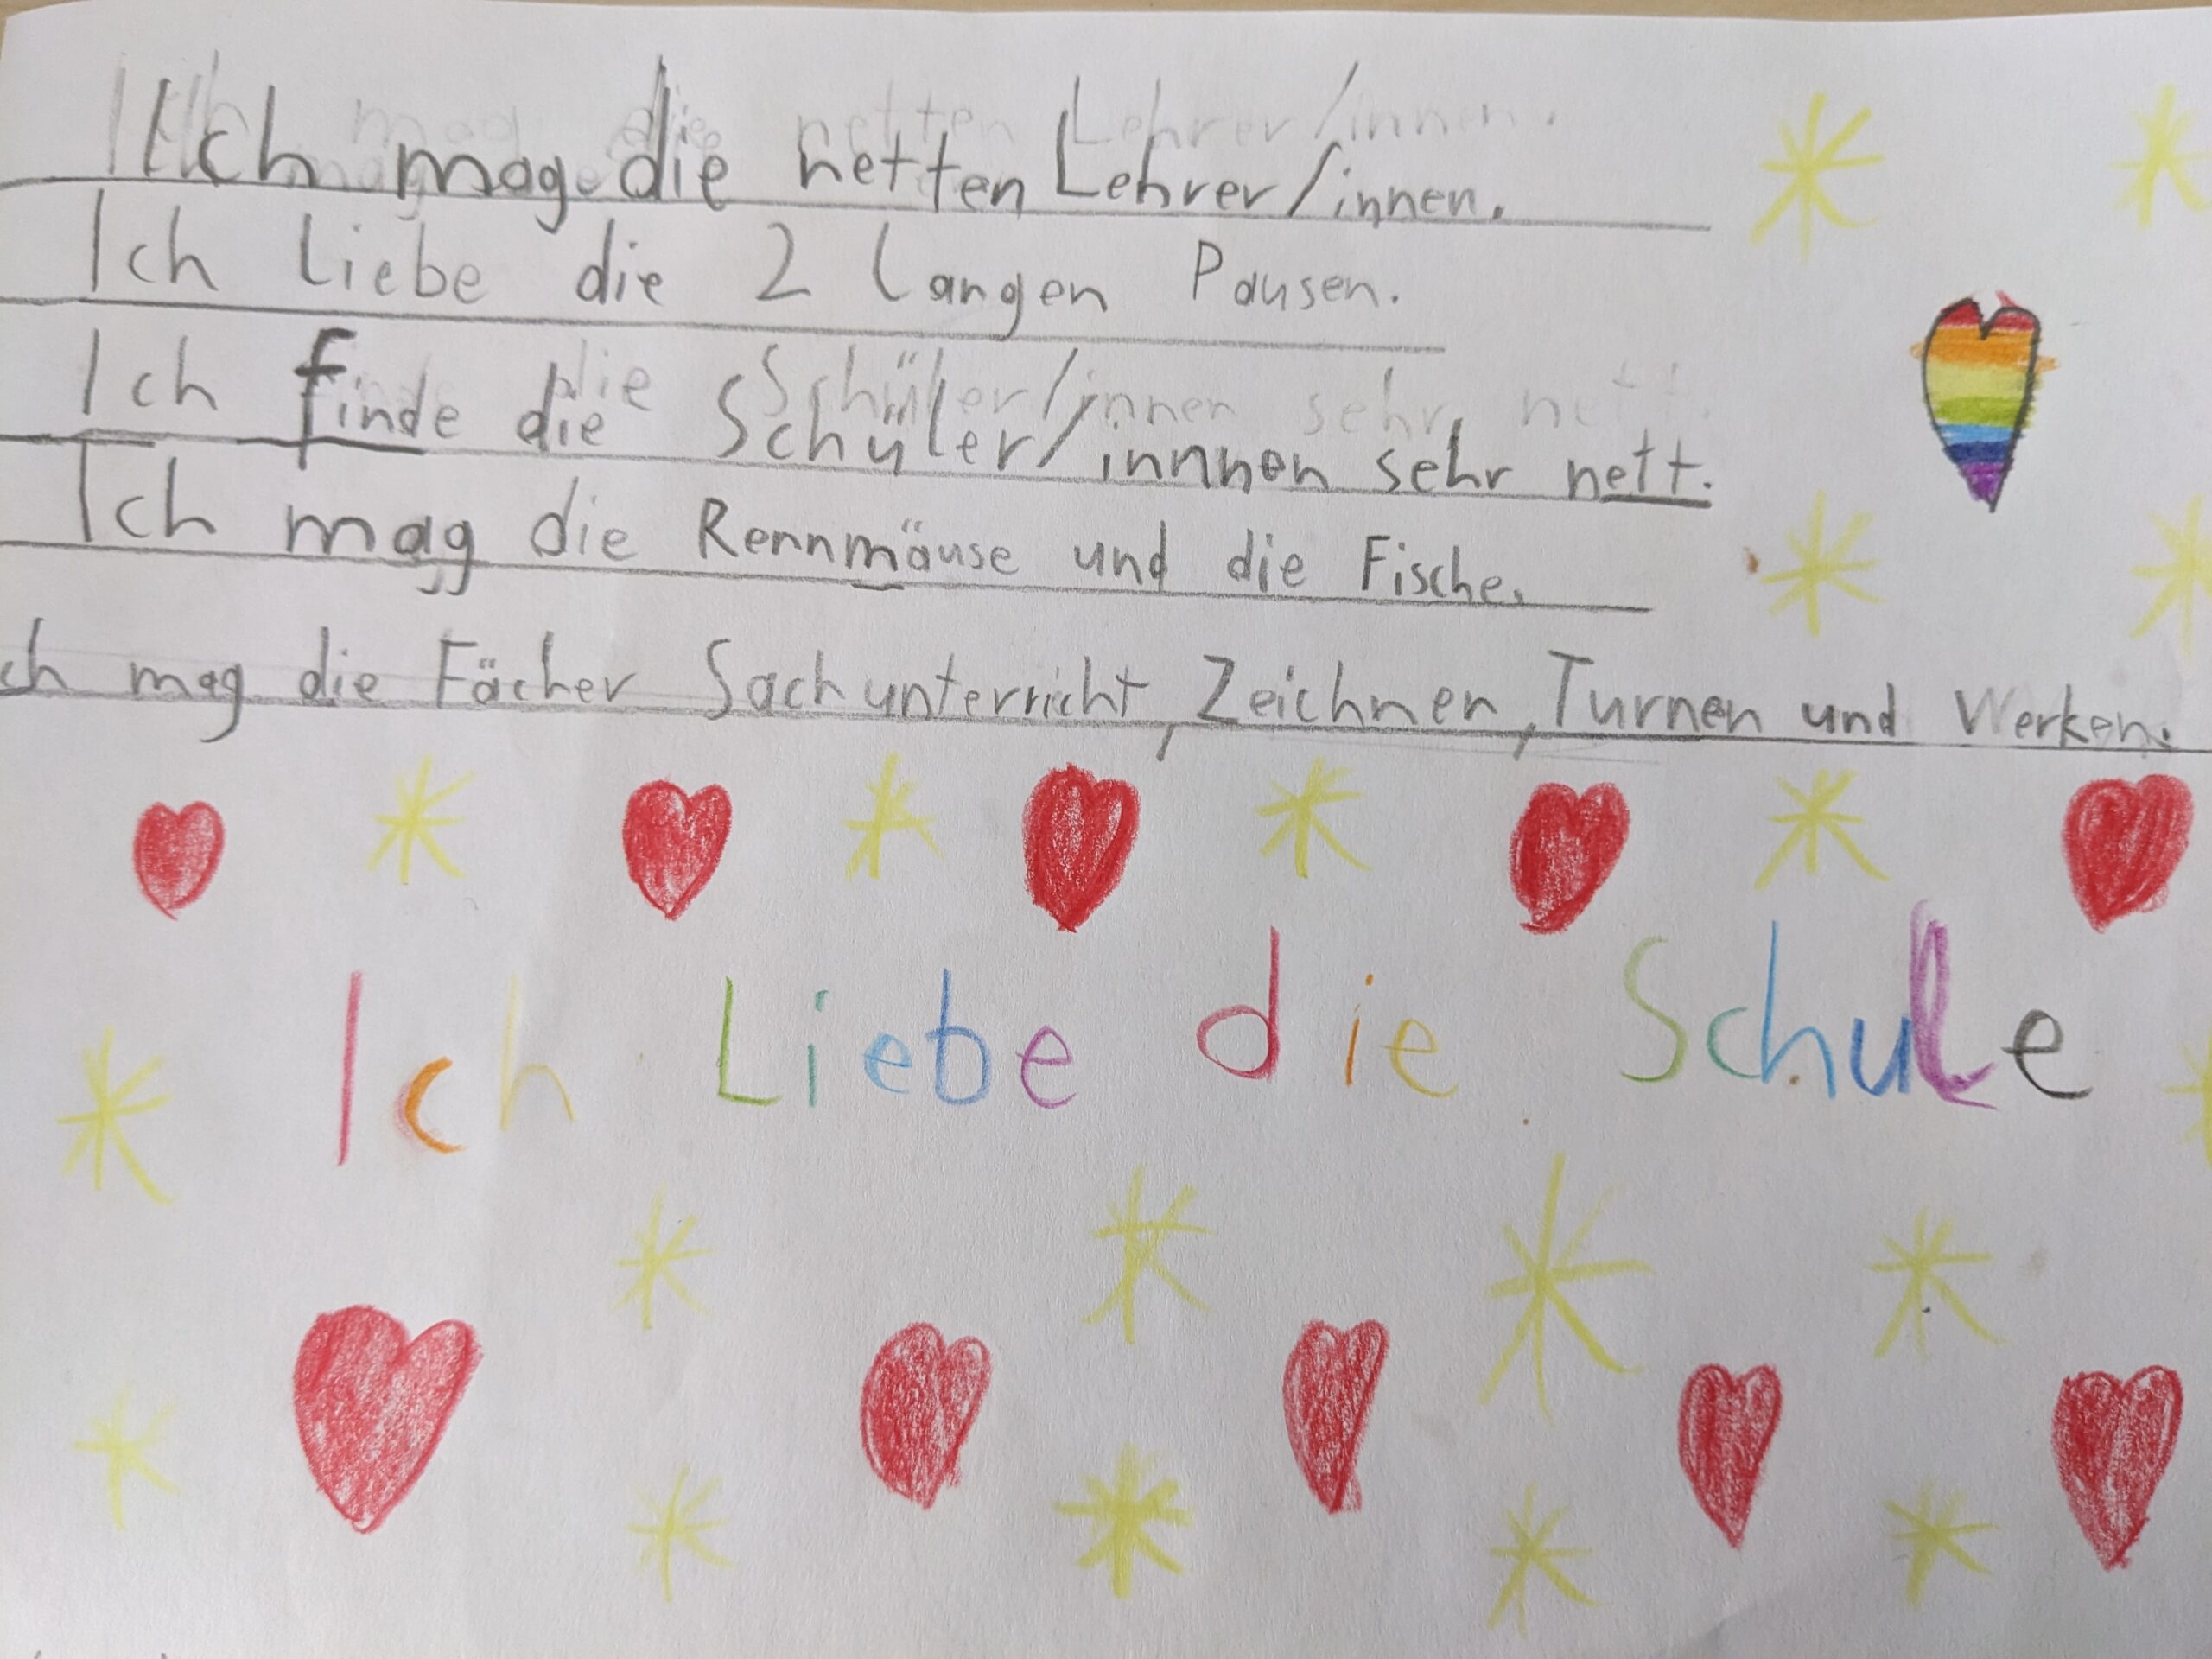 Ich mag die netten Lehrer/innen.
Ich Liebe die 2 langen Pausen.
Ich finde die Schüler/innnen sehr nett.
Ich mag die Rennmäuse und die Fische.
ch mag die Fächer Sachunterricht, Zeichnen, Turnen und Werken.
Ich Liebe die Schule